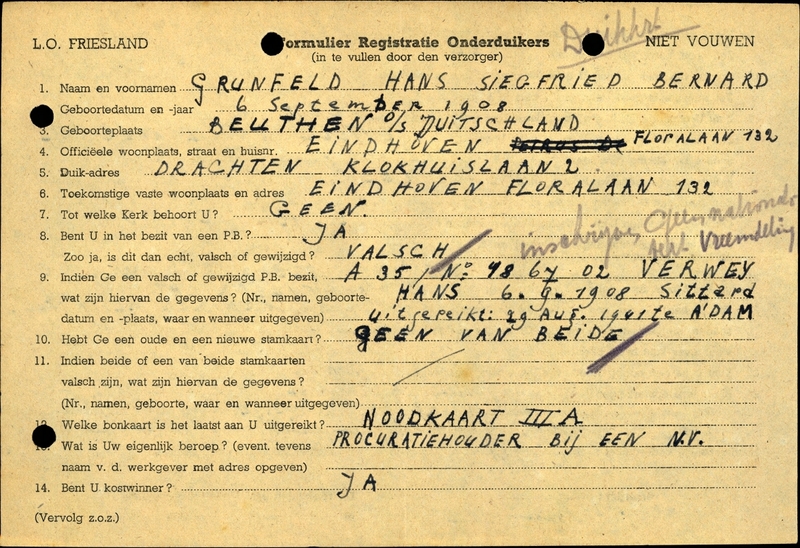 L.O. FRIESLAND Formulier Registratie Onderduikers NIET VOUWEN
(in te vullen door den verzorger)
1. Naam en voornamen GRUNFELD HANS SIEGFRIED BERNARD
Geboortedatum en -jaar 6 September 1908
3. Geboorteplaats BEUTHEN O/S DUITSCHLAND
4. Officiëele woonplaats, straat en huisnr. EINDHOVEN FLORALAAN 132
5. Duik-adres DRACHTEN KLOKHUISLAAN 2.
6. Toekomstige vaste woonplaats en adres EINDHOVEN FLORALAAN 132
7. Tot welke Kerk behoort U? GEEN.
8. Bent U in het bezit van een P.B.? JA
inschrijven, Geen nationali
teit Vreemdeling
Zoo ja, is dit dan echt, valsch of gewijzigd? VALSCH
9. Indien Ge een valsch of gewijzigd P.B. bezit, A 35 / No: 98 67 02 VERWEY
wat zijn hiervan de gegevens? (Nr., namen, geboorte- HANS 6.9.1908 Sittard
datum en -plaats, waar en wanneer uitgegeven) Uitgereikt: 29 Aug. 1941 te A'DAM
10. Hebt Ge een oude en een nieuwe stamkaart? GEEN VAN BEIDE
11. Indien beide of een van beide stamkaarten
valsch zijn, wat zijn hiervan de gegevens?
(Nr., namen, geboorte, waar en wanneer uitgegeven)
12. Welke bonkaart is het laatst aan U uitgereikt? NOODKAART III A
13. Wat is Uw eigenlijk beroep? (event. tevens PROCURATIEHOUDER BIJ EEN N.V.
naam v. d. werkgever met adres opgeven)
14. Bent U kostwinner? JA
(Vervolg z.o.z.)